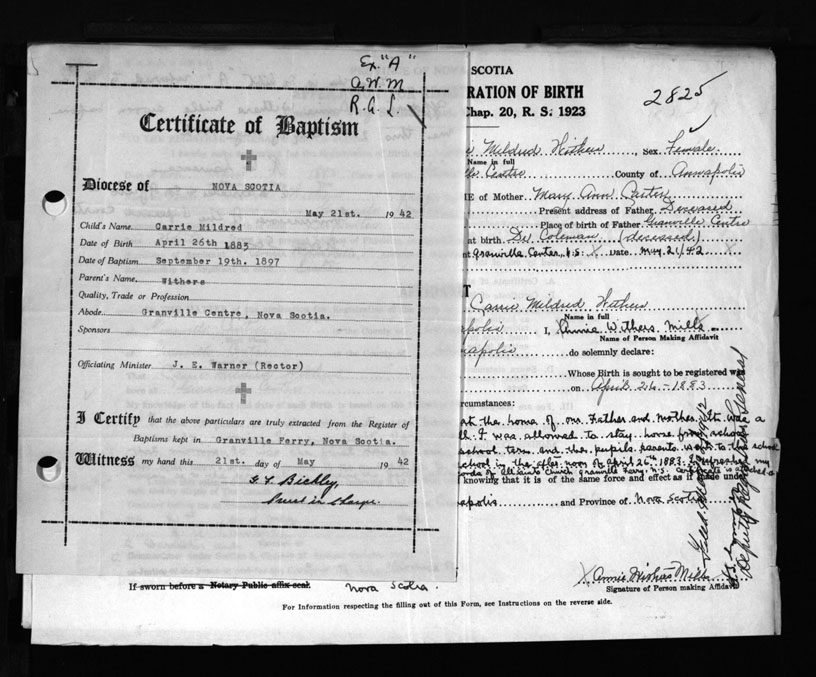 Ex. "A"
A.W.M
R.G.L.
Certificate of Baptism
Diocese of NOVA SCOTIA
May 21st. 1942
Child's Name Carrie Mildred
Date of Birth April 26th 1883
Date of Baptism September 19th. 1897
Parent's Name Withers
Quality, Trade or Profession
Abode Granville Centre, Nova Scotia.
Sponsors
Officiating Minister J. E. Warner (Rector)
I Certify that the above particulars are truly extracted from the Register of
Baptisms kept in Granville Ferry, Nova Scotia.
Witness my hand this 21st. day of May 1942
Priest in Charge.
SCOTIA
RATION OF BIRTH
Chap. 20, R. S. 1923
2825
Mildred Withers, Sex Female.
Name in full
Centre County of Annapolis
E of Mother Mary Ann Carter
Present address of Father Deceased
Place of birth of Father Granville Centre
nt birth Dr Coleman (deceased)
Granville Center, N.S. X Date May 21/42 X
T
Carrie Mildred Withers
Name in full
apolis I, Annie Withers Mills
Name of Person Making Affidavit
napolis do solemnly declare:
Whose Birth is sought to be registered was
on April 26-1883
rcumstances:
at the home of our Father and mother. It was a
I was allowed to stay home from school
school term and the pupils parents went to the school
school in the after noon of April 26th 1883.
Church Granville Ferry N.S. Certificate is attached
knowing that it is of the same force and effect as if made under
apolis and Province of Nova Scotia
X Annie Withers Mills
Signature of Person making Affidavit
Deputy Registrar General
If sworn before a Notary Public affix seal. Nova Scotia.
For Information respecting the filling out of this Form, see Instructions on the reverse side.